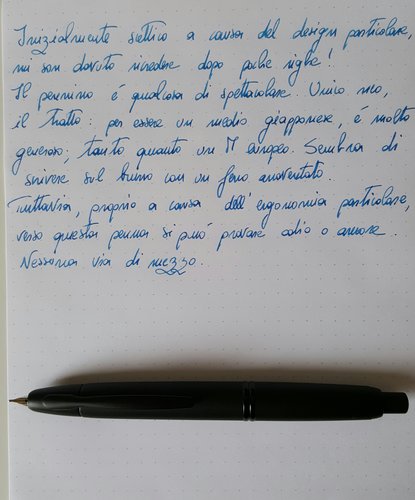 Inizialmente scettico a causa del design particolare,
mi son dovuto ricredere dopo poche righe!
Il pennino é qualcosa di spettacolare. Unico neo,
il tratto: per essere un medio giapponese, é molto
generoso; tanto quanto un M europeo. Sembra di
scrivere sul burro con un ferro arroventato.
Tuttavia, proprio a causa dell'ergonomia particolare,
verso questa penna si può provare odio o amore.
Nessuna via di mezzo.